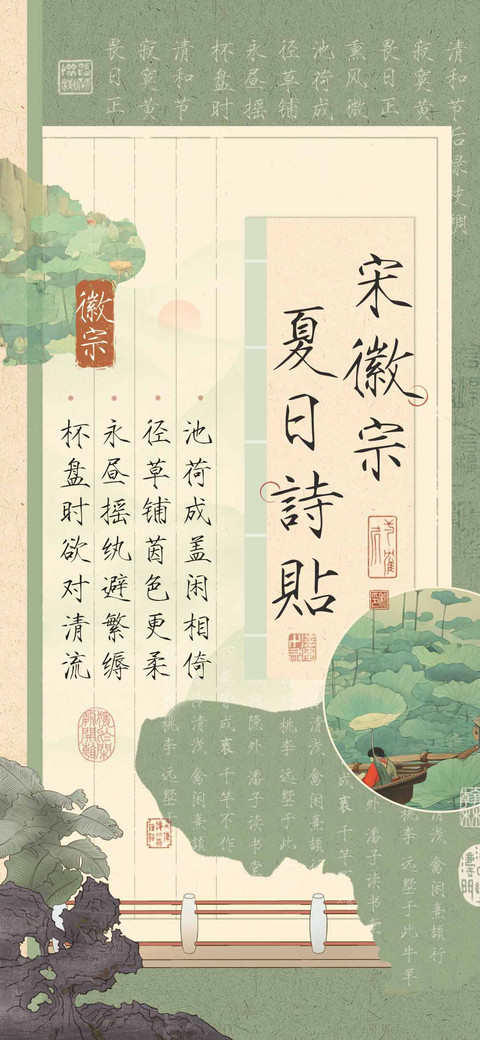 清和节后绿枝稠
寂寞黄
畏日正
熏风微
池荷成
径草铺
永昼摇
杯盘时
清和节
寂寞黄
畏日正
宋徽宗
夏日詩貼
徽宗
池荷成盖闲相倚
径草铺茵色更柔
永昼摇纨避繁缛
杯盘时欲对清流
清浅 禽闲熹颉行
桃李 远墅于此牛羊
外 潘子读书
千竿
清浅 禽闲熹颉
桃李 远墅于
隐外 潘子读书堂
千竿不作
清浅 禽闲熹颉
桃李 远墅于